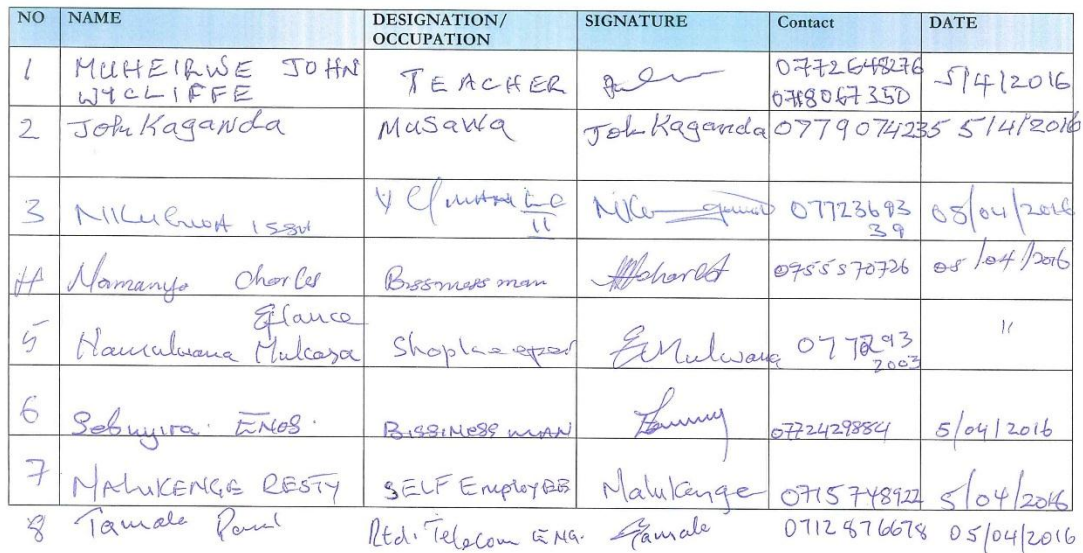 NO NAME DESIGNATION/ OCCUPATION SIGNATURE Contact DATE
1 MUHEIRWE JOHN WYCLIFFE TEACHER 0772648276 0718067350 5/4/2016
2 John Kaganda Musawa John Kaganda 0779074235 5/4/2016
3 II 0772369339 05/04/2016
4 Mamanyo Charles Bissmess man 0755570726 05/04/2016
5 Mukasa Shopkeeper 0772932003 "
6 Sebuyira ENOS. BISSINESS MAN 0772429884 5/04/2016
7 MALUKENGE RESTY SELF EmployEE Malukenge 0715748922 5/04/2016
8 Tamale Paul Rtd. Telecom ENG. Tamale 0712876678 05/04/2016